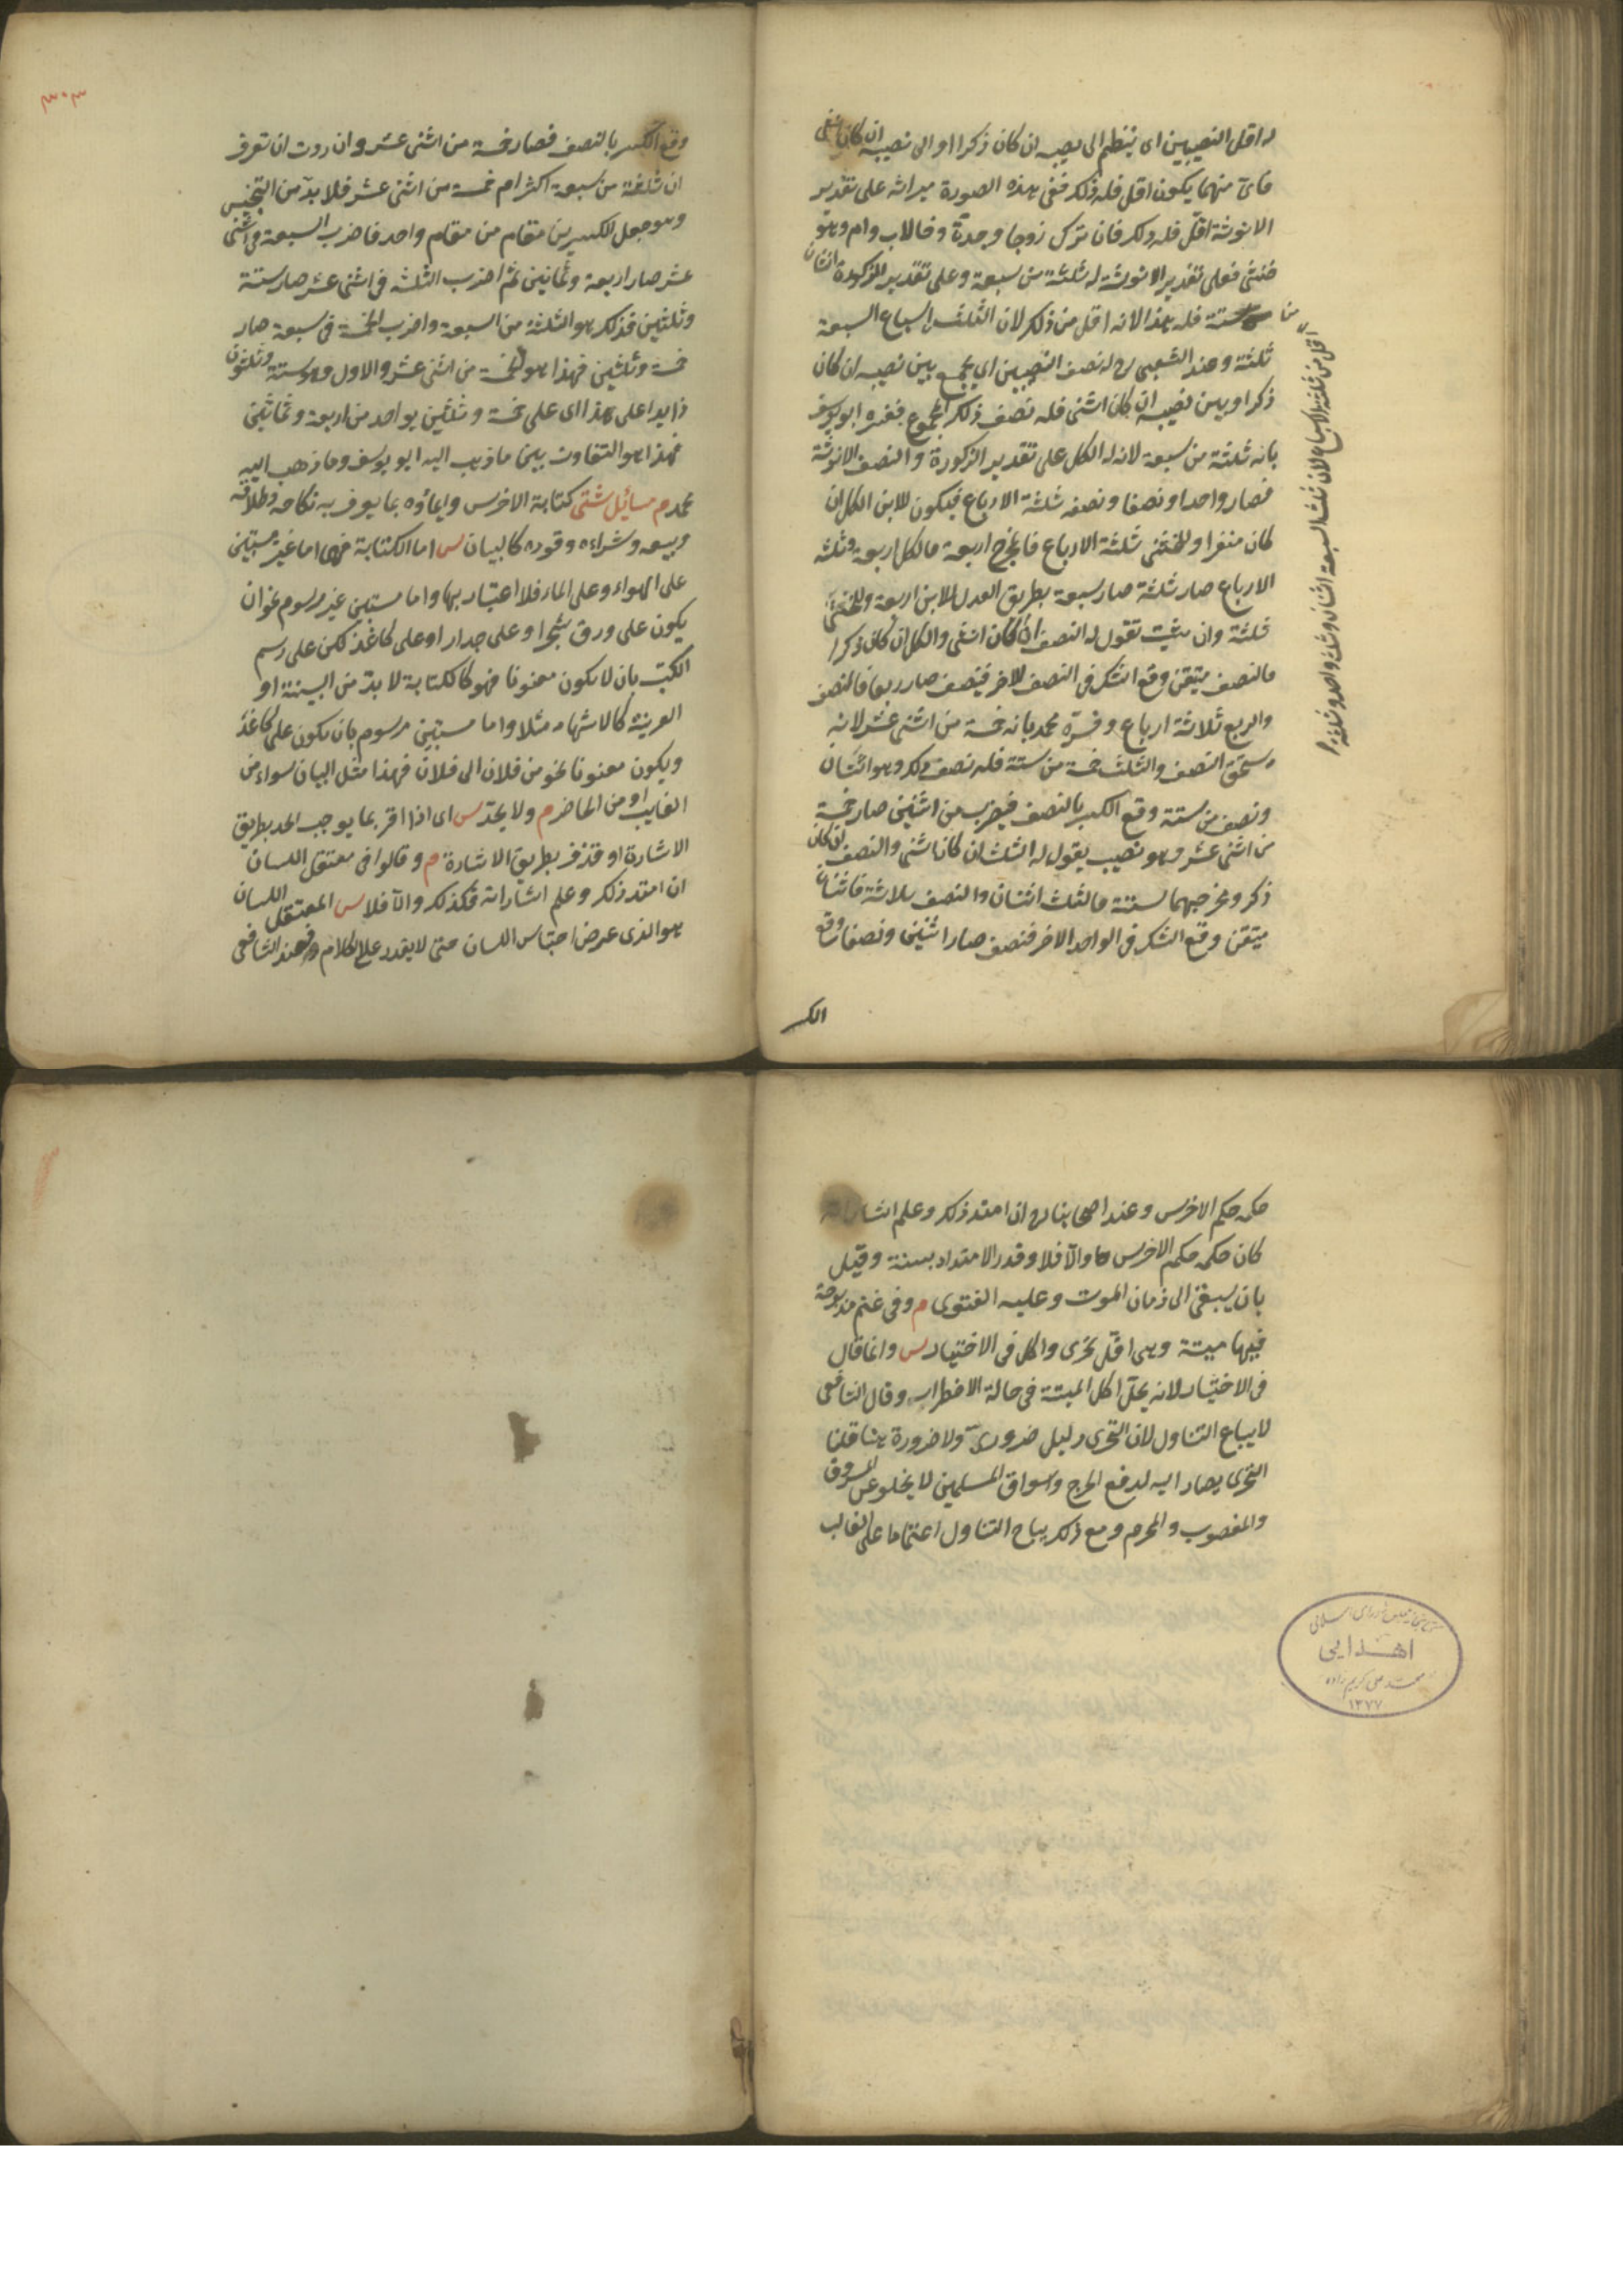 له اقل النصيبين اى ينظر الى نصيبه ان كان ذكرا او الى نصيبه ان كان انثى
فاىّ منهما يكون اقل فله ذلك ففى هذه الصورة ميراثه على تقدير
الانوثة اقلّ فله ذلك فان ترك زوجا وجدة وخالاب وام وهو
خنثى فعلى تقدير الانوثة له ثلثة من سبعة وعلى تقدير الذكورة اثنان
من ستة فله هذا لانه اقل من ذلك لان الثلث اسباع السبعة
ثلثة وعند الشعبى رح له نصف النصيبين اى يجمع بين نصيبه ان كان
ذكرا وبين نصيبه ان كان انثى فله نصف ذلك المجموع ففسره ابو يوسف
بانه ثلثة من سبعة لانه له الكل على تقدير الذكورة والنصف الانوثة
فصار واحدا ونصفا ونصفه ثلثة الارباع فيكون للابن الكل لان
كان منفردا وللخنثى ثلثة الارباع فالمخرج اربعة فالكل اربعة وثلثة
الارباع صار ثلثة صار سبعة بطريق العول للابن اربعة وللخنثى
ثلثة وان شئت تقول له النصف ان كان انثى والكل ان كان ذكرا
فالنصف متيقن وقع الشك فى النصف الاخر فينصف صار ربعا فالنصف
والربع ثلاثة ارباع وفسّره محمد بانه خمسة من اثنى عشر لانه
يستحق النصف والثلث خمسة من ستة فله نصف ذلك وهو اثنان
ونصف من ستة وقع الكسر بالنصف فيضرب من اثنين صار خمسة
من اثنى عشر وهو نصيب يقول له الثلث ان كان انثى والنصف ان كان
ذكر ومخرجهما ستة فالثلث اثنان والنصف ثلاثة فاثنان
متيقن وقع الشك فى الواحد الاخر فنصف صار اثنين ونصفا وقع
الكسر
اقل من ثلثة الاسباع لان ثلث السبعة اثنان وثلث واحد
٣٠٣
وقع الكسر بالنصف فصار خمسة من اثنى عشر وان اردت ان تعرف
ان ثلثة من سبعة اكثر ام خمسة من اثنى عشر فلا بدّ من التجنيس
وهو جعل الكسرين من مقام واحد فاضرب السبعة فى اثنى
عشر صار اربعة وثمانين ثم اضرب الثلثة فى اثنى عشر صار ستة
وثلثين فذلك هو الثلثة من السبعة واضرب الخمسة فى سبعة صار
خمسة وثلثين فهذا هو الخمسة من اثنى عشر والاول وهو ستة وثلثون
زايدا على هذا اى على خمسة وثلثين بواحد من اربعة وثمانين
فهذا هو التفاوت بين ما ذهب اليه ابو يوسف وما ذهب اليه
محمد م مسائل شتى كتابة الاخرس وايماؤه بما يعرف به نكاحه وطلاقه
وبيعه وشراءه وقوده كالبيان س اما الكتابة فهى اما غير مستبين
على الهواء وعلى الماء فلا اعتبار بها واما مستبين غير مرسوم نحو ان
يكون على ورق شجر او على جدار او على كاغذ لكن على رسم
الكتب بان لا يكون معنونا فهو كالكتابة لا بدّ من البينة او
القرينة كالاشهاد مثلا واما مستبين مرسوم بان يكون على كاغذ
ويكون معنونا نحو من فلان الى فلان فهذا مثل البيان سواء من
الغايب او من الحاضر م ولا يحدّ س اى اذا اقر بما يوجب الحد بطريق
الاشارة او قذف بطريق الاشارة م وقالوا فى معتقل اللسان
ان امتد ذلك وعلم اشاراته فكذلك والّا فلا س المعتقل اللسان
هو الذى عرض احتباس اللسان حتى لا يقدر على الكلام فعند الشافعى
حكمه حكم الاخرس وعند اصحابنا رح ان امتد ذلك وعلم اشاراته
كان حكمه حكم الاخرس والّا فلا وقدر الامتداد بسنة وقيل
بان يبقى الى زمان الموت وعليه الفتوى م وفى غنم مذبوحة
فيها ميتة وهى اقلّ تحرّى واكل فى الاختيار س وانما قال
فى الاختيار لانه يحلّ اكل الميتة فى حالة الاضطرار وقال الشافعى
لا يباع التناول لان التحرى دليل ضرورىّ ولا ضرورة هنا قلنا
التحرى يصار اليه لدفع الحرج واسواق المسلمين لا يخلو عن المسروق
والمغصوب والمحرم ومع ذلك يباح التناول اعتمادا على الغالب
كتابخانه مجلس شوراى اسلامى
اهدايى
محمد على كريم زاده
١٣٧٧